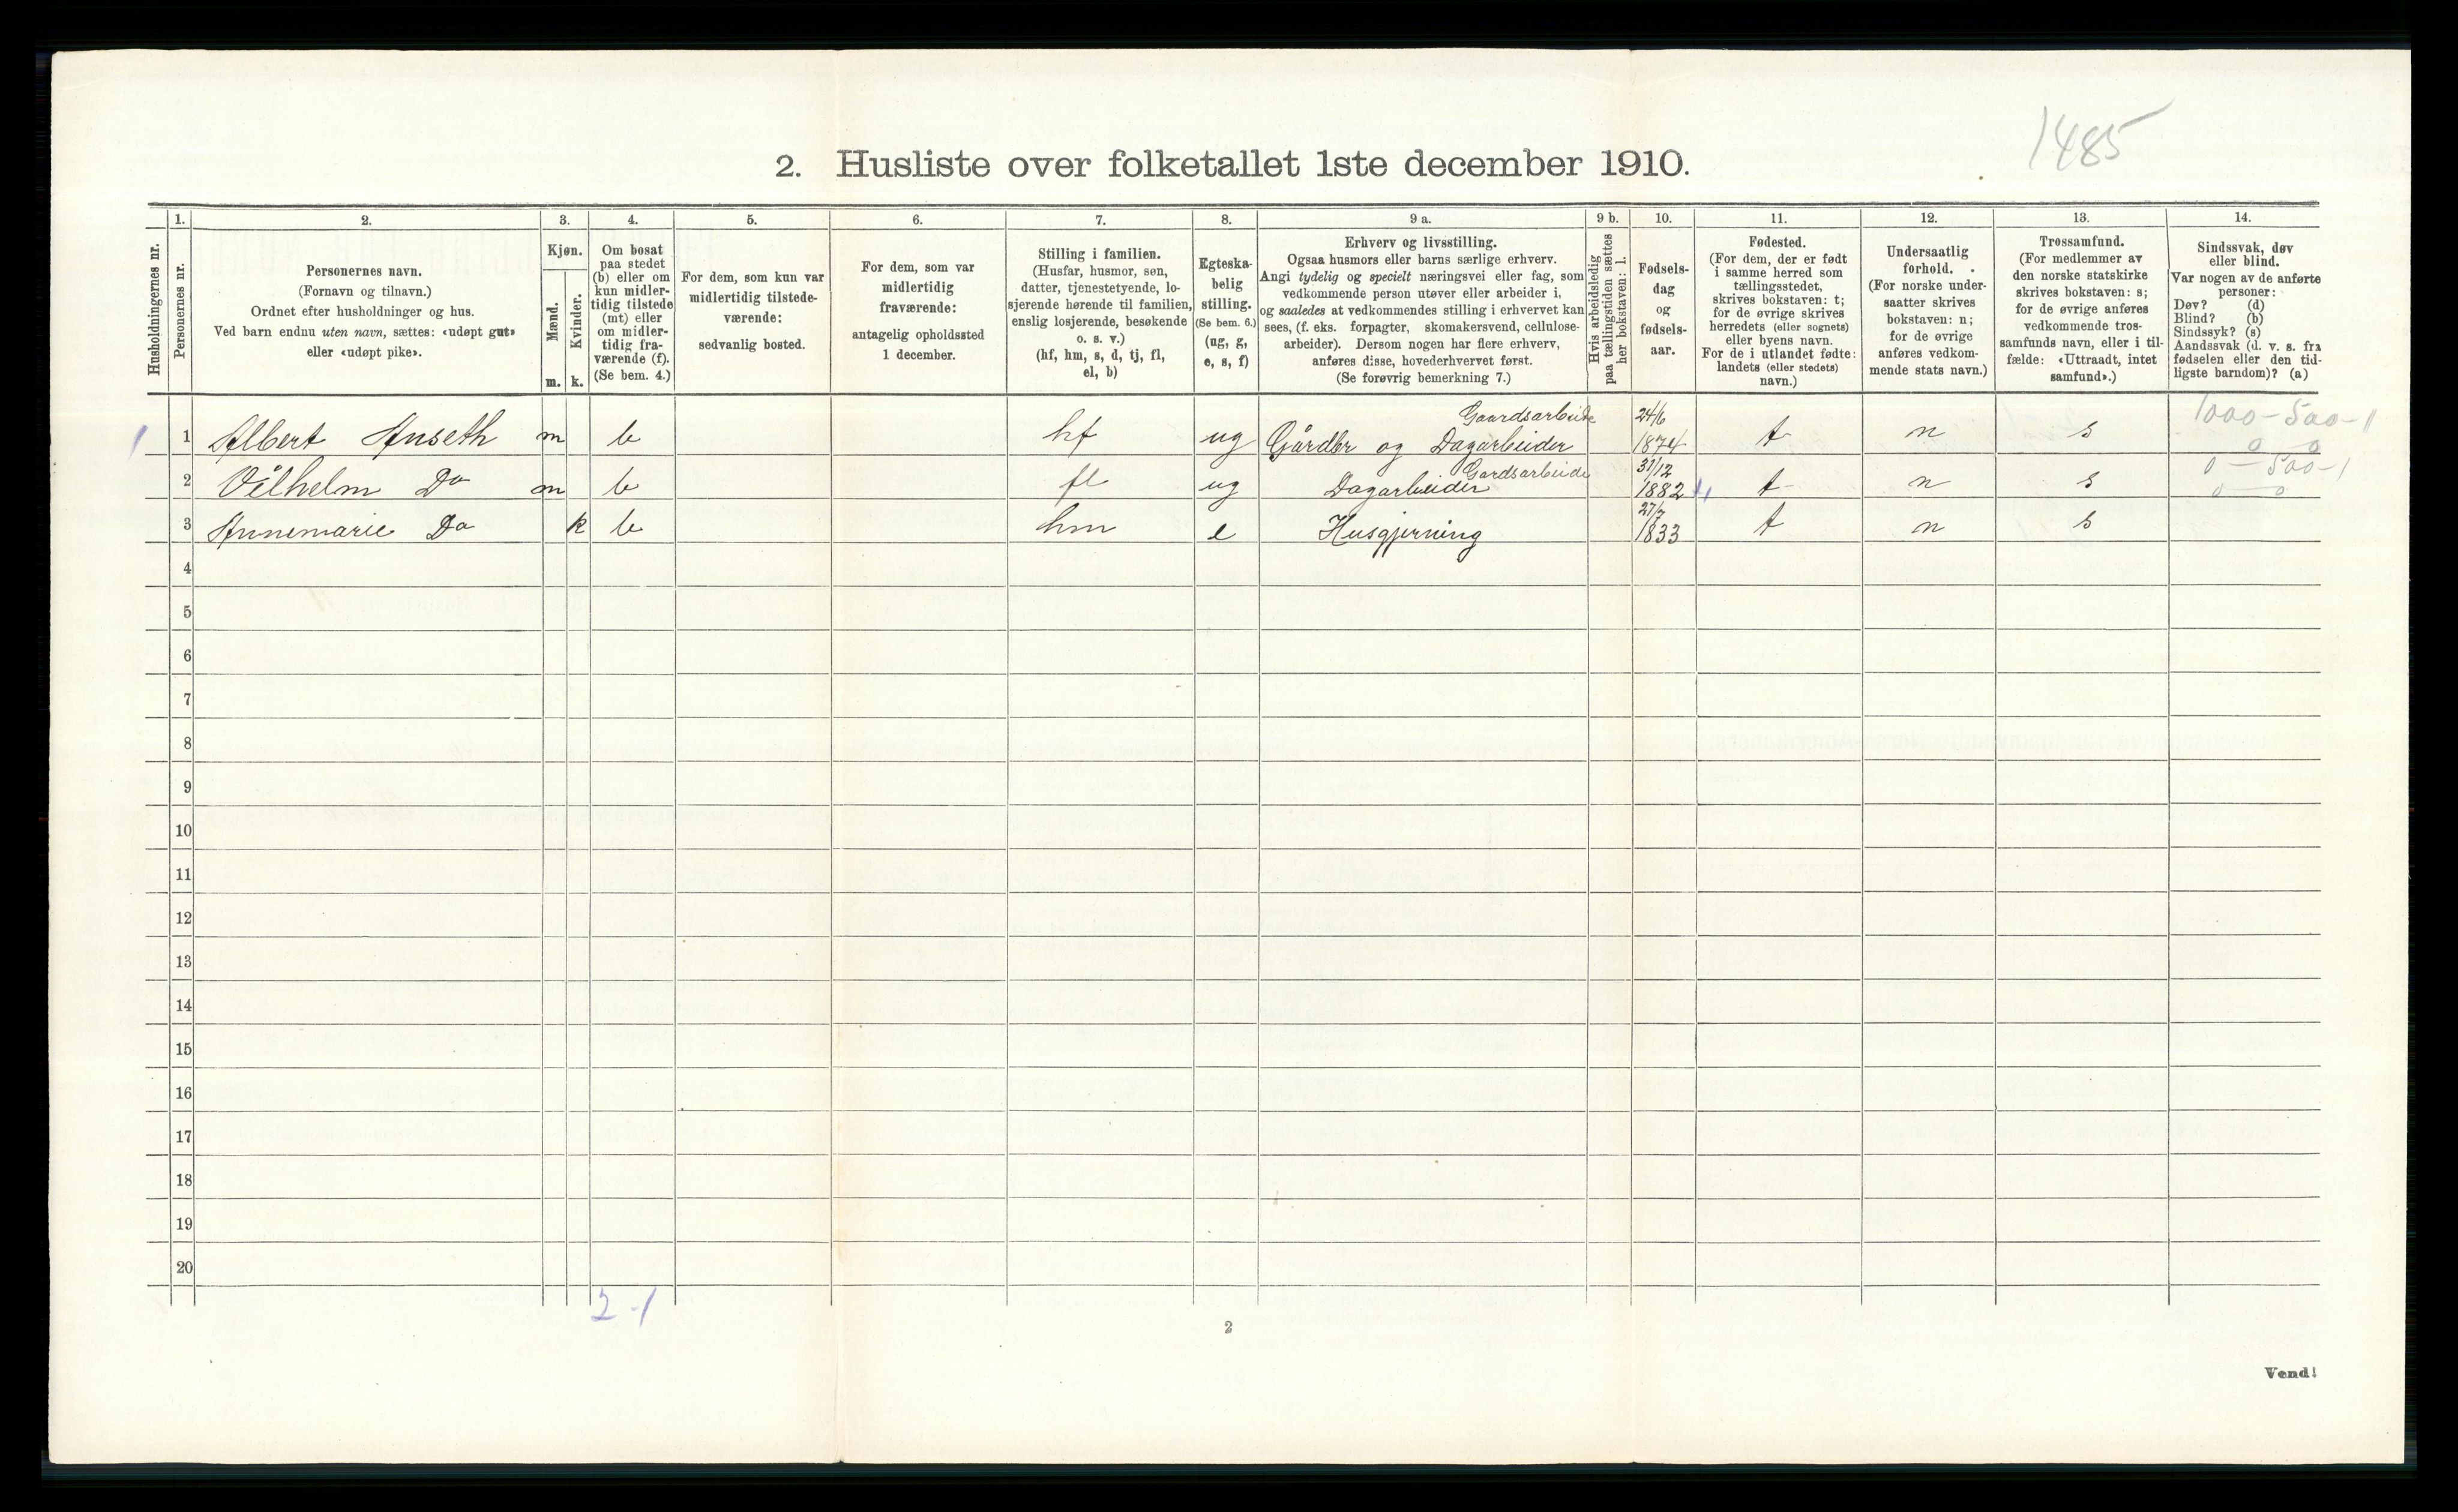 1485
2. Husliste over folketallet 1ste december 1910.
1. 2. 3. 4. 5. 6. 7. 8. 9 a. 9 b. 10. 11. 12. 13. 14.
Husholdningernes nr.
Personernes nr.
Personernes navn.
(Fornavn og tilnavn.)
Ordnet efter husholdninger og hus.
Ved barn endnu uten navn, sættes: «udøpt gut»
eller «udøpt pike».
Kjøn.
Mænd.
Kvinder.
m. k.
Om bosat
paa stedet
(b) eller om
kun midler-
tidig tilstede
(mt) eller
om midler-
tidig fra-
værende (f).
(Se bem. 4.)
For dem, som kun var
midlertidig tilstede-
værende:
sedvanlig bosted.
For dem, som var
midlertidig
fraværende:
antagelig opholdssted
1 december.
Stilling i familien.
(Husfar, husmor, søn,
datter, tjenestetyende, lo-
sjerende hørende til familien,
enslig losjerende, besøkende
o. s. v.)
(hf, hm, s, d, tj, fl,
el, b)
Egteska-
belig
stilling.
(Se bem. 6.)
(ug, g,
e, s, f)
Erhverv og livsstilling.
Ogsaa husmors eller barns særlige erhverv.
Angi tydelig og specielt næringsvei eller fag, som
vedkommende person utøver eller arbeider i,
og saaledes at vedkommendes stilling i erhvervet kan
sees, (f. eks. forpagter, skomakersvend, cellulose-
arbeider). Dersom nogen har flere erhverv,
anføres disse, hovederhvervet først.
(Se forøvrig bemerkning 7.)
Hvis arbeidsledig
paa tællingstiden sættes
her bokstaven: l.
Fødsels-
dag
og
fødsels-
aar.
Fødested.
(For dem, der er født
i samme herred som
tællingsstedet,
skrives bokstaven: t;
for de øvrige skrives
herredets (eller sognets)
eller byens navn.
For de i utlandet fødte:
landets (eller stedets)
navn.)
Undersaatlig
forhold.
(For norske under-
saatter skrives
bokstaven: n;
for de øvrige
anføres vedkom-
mende stats navn.)
Trossamfund.
(For medlemmer av
den norske statskirke
skrives bokstaven: s;
for de øvrige anføres
vedkommende tros-
samfunds navn, eller i til-
fælde: «Uttraadt, intet
samfund».)
Sindssvak, døv
eller blind.
Var nogen av de anførte
personer:
Døv? (d)
Blind? (b)
Sindssyk? (s)
Aandssvak (d. v. s. fra
fødselen eller den tid-
ligste barndom)? (a)
Gaardsarbeide 24/6 1000-500-1
1 1 Albert Anseth m b hf ug Gårdbr og Dagarbeider 1874 t n s 0 0
Gardsarbeide 31/12 0-500-1
2 Vilhelm Do m b fl ug Dagarbeider 1882 t n s 0 0
27/7
3 Annemarie Do k b hm e Husgjerning 1833 t n s
4
5
6
7
8
9
10
11
12
13
14
15
16
17
18
19
20
2-1
2
Vend!